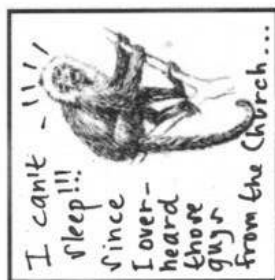 I can't
sleep!!!
since
I over-
heard
those
guys
from the Church...